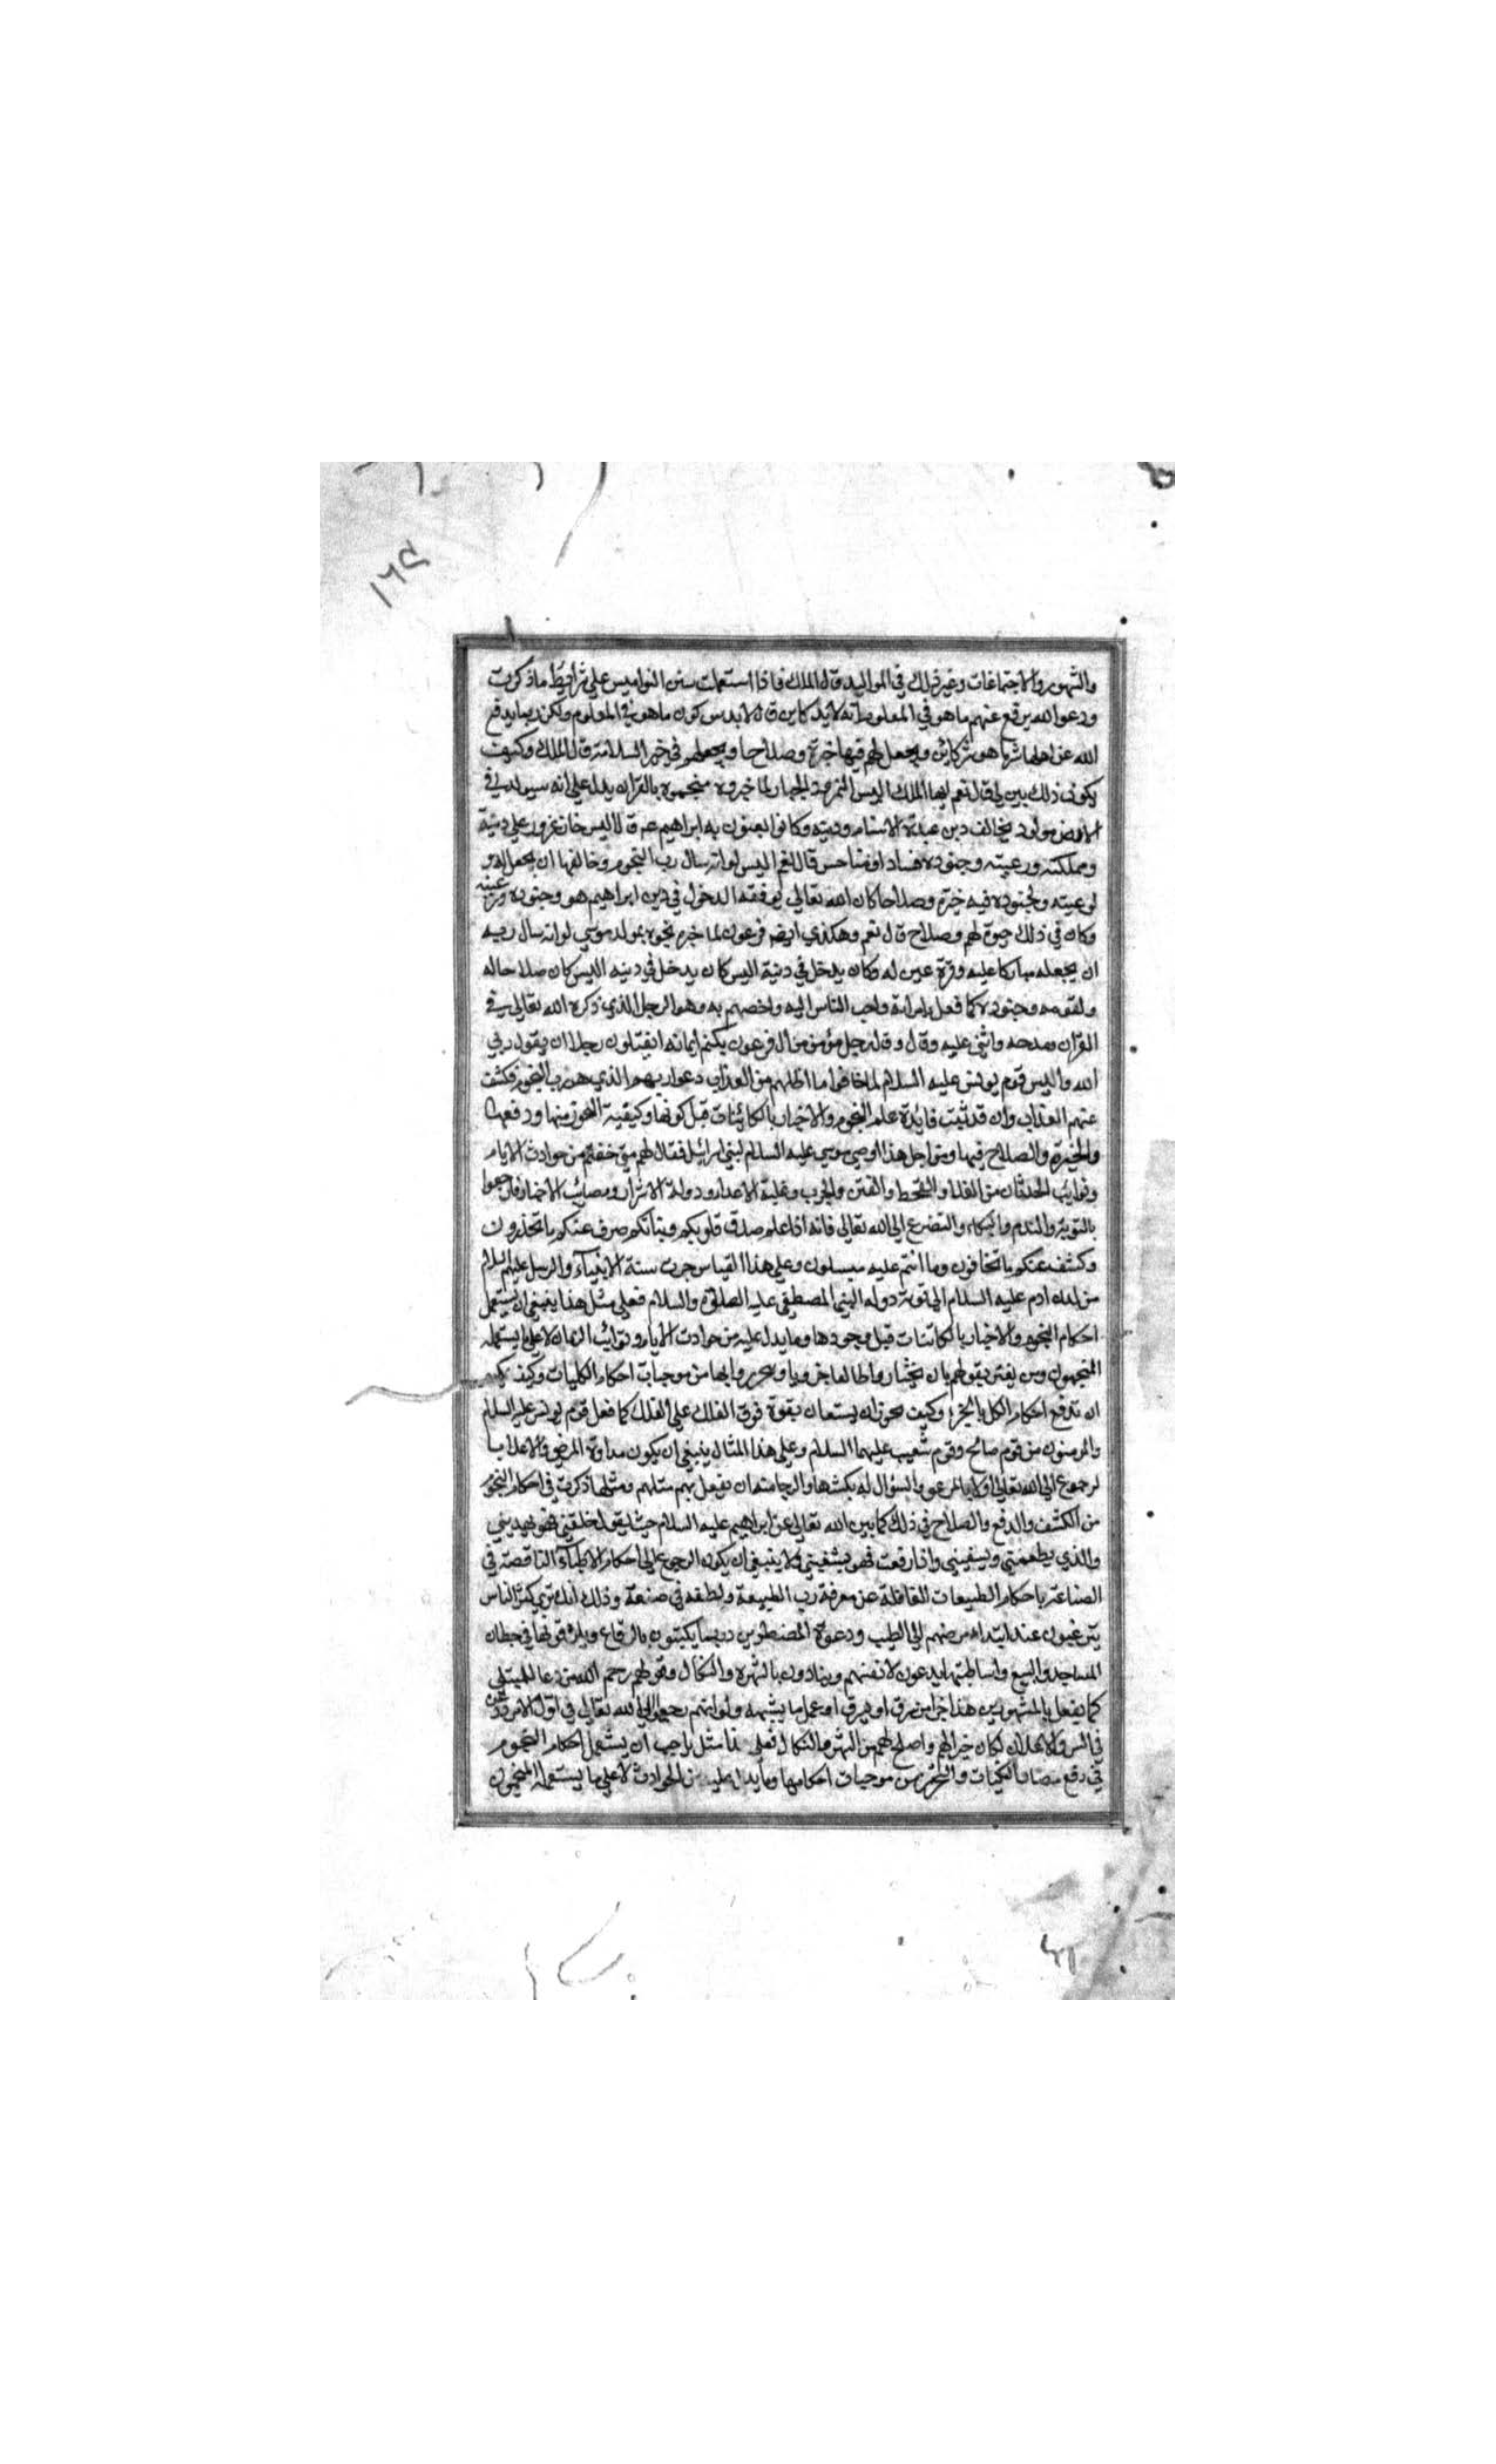 ١٦٤
والشهور والاجتماعات وغير ذلك في المواليد قال الملك فاذا استعملت سنن النواميس على شرايط ما ذكرت
ودعوا الله يرفع عنهم ما هو في المعلوم انه لابد كاين قال لابد من كون ما هو في المعلوم ولكن ربما يدفع
الله عن اهلها شر ما هو شر كائن ويجعل لهم فيها خيرة وصلاحا ويجعلهم في خير السلامة قال الملك وكيف
يكون ذلك بين لي قال نعم ايها الملك اليس النمرود الجبار لما خبروه منجموه بالقران يدل على انه سيولد في
الارض مولود يخالف دين عبدة الاصنام ودينه وكانوا يعنون به ابراهيم عم قال اليس خاف غرور على دينه
ومملكته ورعيته وجنوده فسادا قال نعم اليس لو انه سال رب النجوم وخالقها ان يجعل له و
لرعيته ولجنوده فيه خيرة وصلاحا كان الله تعالى يوفقه الدخول في دين ابراهيم هو وجنوده ورعيته
وكان في ذلك حيوة لهم وصلاح قال نعم وهكذي ايضا فرعون لما خبره نجموه بمولد موسى لو انه سال ربه
ان يجعله مباركا عليه وقرة عين له وكان يدخل في دينه اليس كان يدخل في دينه اليس كان صلاحا له
ولقومه وجنوده كما فعل بامراته واحب الناس اليه واخصهم به وهو الرجل الذي ذكره الله تعالى في
القران ومدحه واثنى عليه وقال وقال رجل مؤمن من ال فرعون يكتم ايمانه اتقتلون رجلا ان يقول ربي
الله واليس قوم يونس عليه السلام لما خافوا ما اظلهم من العذاب دعوا ربهم الذي هو رب النجوم فكشف
عنهم العذاب وان قد تبينت فائدة علم النجوم والاخبار بالكائنات قبل كونها وكيفية التحرز منها ودفعها
والخيرة والصلاح فيها ومن اجل هذا اوصى موسى عليه السلام لبني اسرائيل فقال لهم متى خفتم من حوادث الايام
ونوايب الحدثان من الغلا والقحط والفتن والحرب وغلبة الاعداء ودولة الاشرار ومصائب الاخيار فارجعوا
بالتوبة والندم والبكاء والتضرع الى الله تعالى فانه اذا علم صدق قلوبكم ونياتكم صرف عنكم ما تحذرون
وكشف عنكم ما تخافون وما انتم عليه مبسلون وعلى هذا القياس جرت سنة الانبياء والرسل عليهم السلام
من لدن ادم عليه السلام الى نوبة دولة النبي المصطفى عليه الصلاوة والسلام فعلى مثل هذا ينبغي ان يستعمل
احكام النجوم والاخبار بالكائنات قبل وجودها وما يدل عليه من حوادث الايام ونوائب الزمان لا على ما يستعمله
المنجمون ومن يغتر بقولهم بان يختاروا طالعا من موجبات احكام الكليات وكيف يمكن
ان تدفع احكام الكل بالجزء وكيف يجوز ان يستعان بقوة فوق الفلك على الفلك كما فعل قوم يونس عليه السلام
والمومنون من قوم صالح وقوم شعيب عليهما السلام وعلى هذا المثال ينبغي ان يكون مداوة المرضى والاعلاء
لرجوع الى الله تعالى اولا بالدعو والسؤال له بكشفها والرجاء منه ان يفعل بهم مثلهم ومثلما ذكرت في احكام النجوم
من الكشف والدفع والصلاح في ذلك كما بين الله تعالى عن ابراهيم عليه السلام حيث يقول خلقني فهو يهديني
والذي يطعمني ويسقيني واذا مرضت فهو يشفيني ولا ينبغي ان يكون الرجوع الى احكام الاطباء الناقصة في
الصناعة باحكام الطبيعات الغافلة عن معرفة رب الطبيعة ولطفه في صنعة وذلك انك ترى كثر الناس
يترغبون عند ابتداء مرضهم الى الطب ودعوة المضطرين ربما يكتبون بالرقاع ويلزقونها في حيطان
المساجد والبيع واساطينها يدعون لانفسهم وينادون بالشهرة والنكال وقولهم رحم الله من دعا للمبتلى
كما يفعل بالمشهورين هذا جزا من سرق او عمل ما يشبهه ولو انهم رجعوا الى الله تعالى في اول الامر ودعوا
في السر والاعلان لكان خيرا لهم واصلح لهم من الشهرة والنكال فعلى هذا مثل يجب ان يستعمل احكام النجوم
في دفع مضار النكبات والتحرز من موجبات احكامها وما يدل عليه من الحوادث لا على ما يستعمله المنجمون